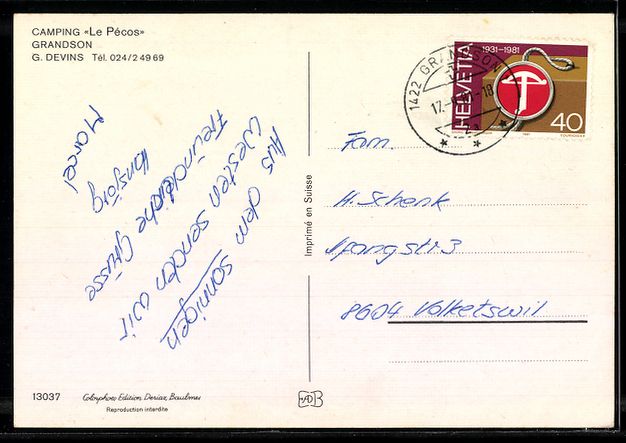 CAMPING «Le Pécos»
GRANDSON
G. DEVINS Tél. 024/2 49 69
Aus dem sonnigen
Westen senden wir
freundliche Grüsse
Hansjörg
Marcel
13037
Colorphoto Edition Deriaz, Baulmes
Reproduction interdite
Imprimé en Suisse
1422 GRANDSON
HELVETIA
1931-1981
40
Fam.
H. Schenk
8604 Volketswil